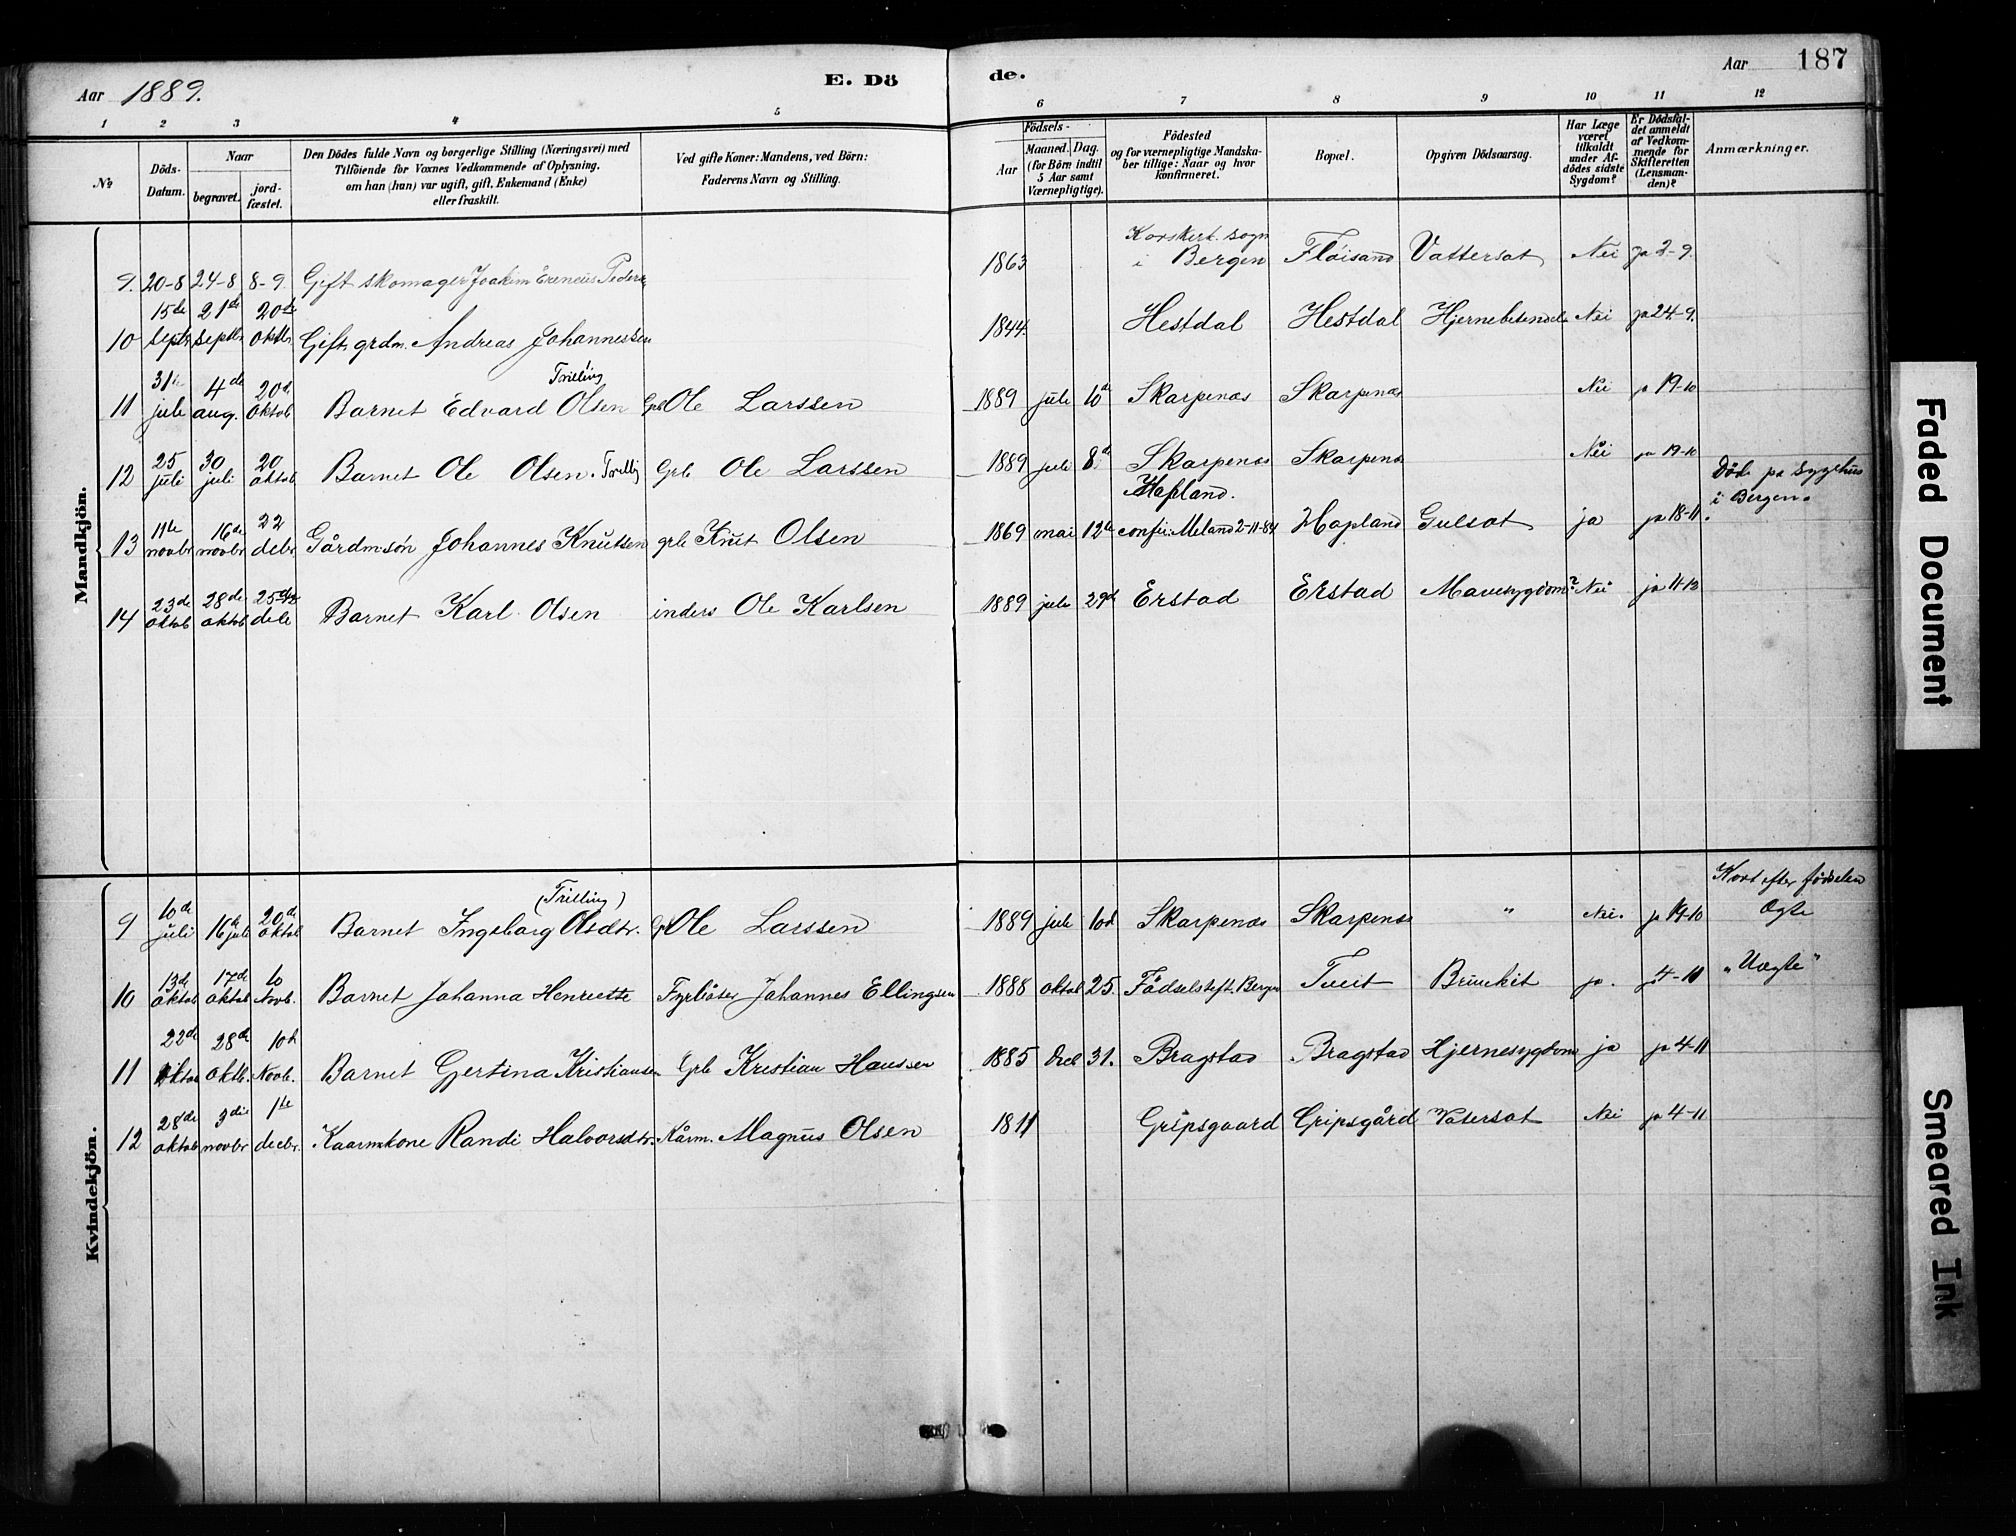 Aar 1889.
E. Dö
de.
Aar
187
1 2 3 4 5 6 7 8 9 10 11 12
No
Döds-Datum.
Naar
begravet.
jord-fæstet.
Den Dödes fulde Navn og borgerlige Stilling (Næringsvei) med
Tilföiende for Voxnes Vedkommende af Oplysning.
om han (hun) var ugift, gift, Enkemand (Enke)
eller fraskilt.
Ved gifte Koner: Mandens, ved Börn:
Faderens Navn og Stilling.
Födsels-
Aar
Maaned. Dag.
(for Börn indtil
5 Aar samt
Værnepligtige).
Födested
og for værnepligtige Mandska-
ber tillige: Naar og hvor
konfirmeret.
Bopæl.
Opgiven Dödsaarsag.
Har Læge
været
tilkaldt
under Af-
dödes sidste
Sygdom?
Er Dödsfal-
det anmeldt
af Vedkom-
mende for
Skifteretten
(Lensman-
den)?
Anmærkninger.
Mandkjön.
9. 20-8 24-8 8-9. Gift skomager Joakim Ereneus Peders 1863 Korskirk. sogn i Bergen Flöisand Vattersot Nei ja 2-9.
10 15de septr 21de septbr 20de oktbr Gift grdm. Andreas Johannessen 1844. Hestdal Hestdal Nei ja 24-9.
11 31te juli 4de aug. 20de oktob Barnet Edvard Olsen Trilling Grb Ole Larssen 1889 juli 10d Skarpenæs Skarpenæs Nei ja 19-10
12 25 juli 30 juli 20 oktob Barnet Ole Olsen. Trilli Grb Ole Larssen 1889 juli 8d Skarpenæs Skarpenæs Nei ja 19-10
13 11te novbr 16de novbr 22 debr Gårdmsön Johannes Knutsen grb Knut Olsen 1869 mai 12te Hapland. confir. Meland 2-11-84 Hapland Gulsot ja ja 18-11. Döde på sygehus i Bergen.
14 23de oktob 28de oktob Barnet Karl Olsen inders Ole Karlsen 1889 juli 29d Erstad Erstad Mavesygdom? Nei ja 11-12
Kvindekjön.
9 10de juli 16de juli 20de oktob Barnet Ingeborg Olsdtr. (Trilling) Gr Ole Larssen 1889 juli 10d Skarpenæs Skarpenæs " Nei. ja 19-10 Kort efter födselen Ægte
10 13de oktob 17de oktob 10 Novb. Barnet Johanna Henriette Fyrböter Johannes Ellingsen 1888 oktob 25. Födselstift. Bergen Tveit ja. ja 4-11 "Uægte"
11 22de oktob 28de oktb. 10d Novb. Barnet Gjertina Kristiansen Grb Kristian Hanssen 1885 Decb 31. Bragstad Bragstad Hjernesygdom ja ja 4-11
12 28de oktob 3die novbr 1te decbr. Kaarmkone Randi Halvorsdtr. Kårm. Magnus Olsen 1811 Gripsgaard Gripsgård Vatersot Nei ja 4-11
Faded Document
Smeared Ink